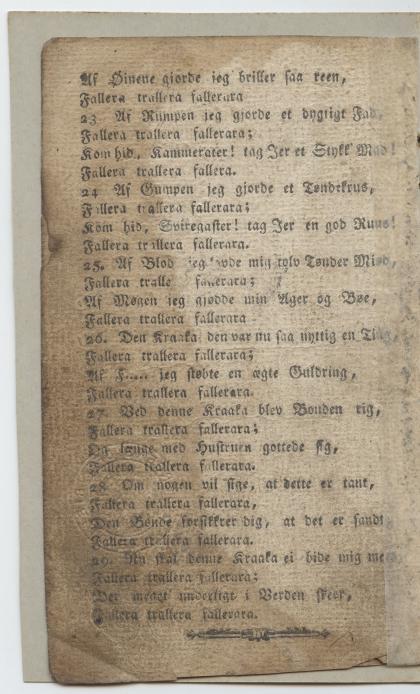 Af Øinene gjorde jeg briller saa reen,
Fallera trallera fallerara
23 Af Rumpen jeg gjorde et dygtigt Fad,
Fallera trallera fallerara;
Kom hid, Kammerater! tag Jer et Stykk' Mad!
Fallera trallera fallera.
24 Af Gumpen jeg gjorde et Tøndekrus,
Fallera trallera fallerara;
Kom hid, Sviregaster! tag Jer en god Ruus!
Fallera trallera fallerara.
25. Af Blod jeg lavde mig tolv Tønder Miød,
Fallera tralle fallerara;
Af Møgen jeg gjødde min Ager og Bøe,
Fallera trallera fallerara
26. Den Kraaka den var nu saa nyttig en Ting,
Fallera trallera fallerara;
Af F..... jeg støbte en ægte Guldring,
Fallera trallera fallerara.
27. Ved denne Kraaka blev Bonden rig,
Fallera trallera fallerara;
Og længe med Hustruen gottede sig,
Fallera trallera fallerara.
28. Om nogen vil sige, at dette er tant,
Fallera trallera fallerara,
Den Bonde forsikkrer dig, at det er sandt
Fallera trallera fallerara.
29. Nu skal denne Kraaka ei bide mig meer
Fallera trallera fallerara;
Der meget underligt i Verden skeer,
Fallera trallera fallerara.